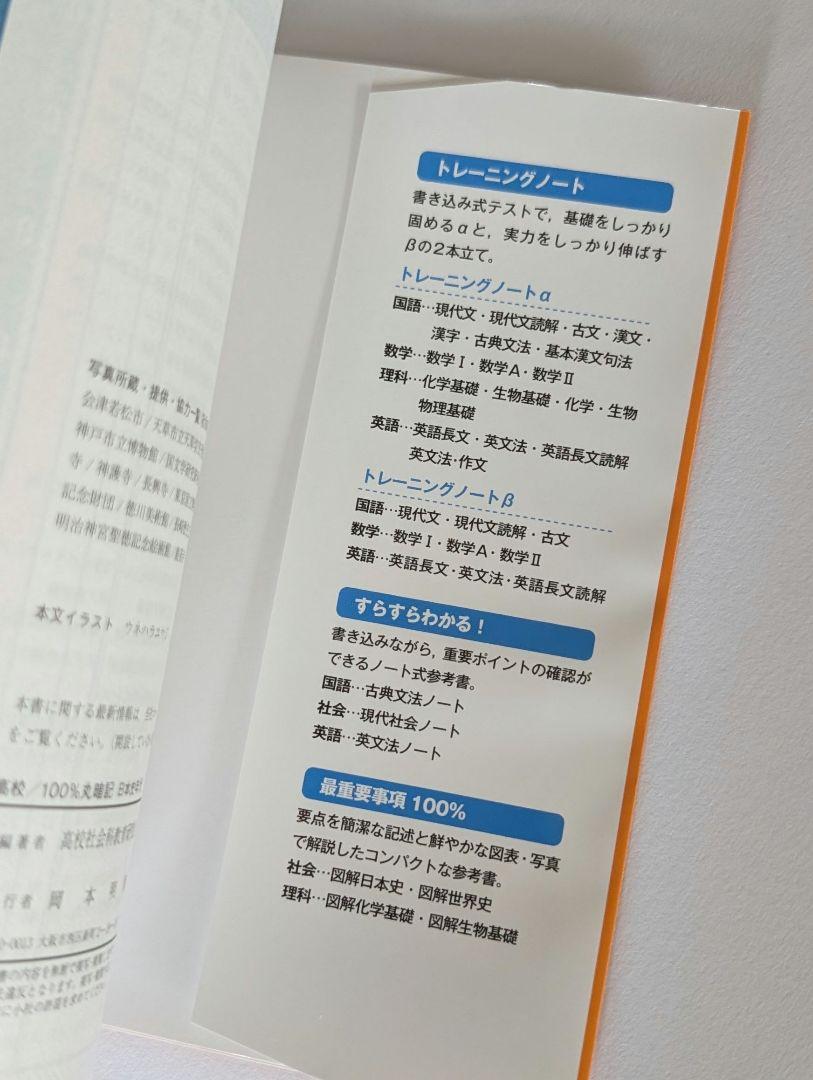 写真所蔵・提供・協力一覧
会津若松市／天草市立天草
神戸市立博物館／国文学研究
寺／神護寺／長興寺／東京
記念財団／徳川美術館／長崎
明治神宮聖徳記念絵画館
本文イラスト ウネハラユウジ
本書に関する最新情報は、
をご覧ください。
高校／100%丸暗記 日本史
編著者 高校社会科教育研
行者 岡本
0013 大阪市西区新町
書の内容を無断で複写・複製
違反となります。
に小社の許諾を求めてください
トレーニングノート
書き込み式テストで，基礎をしっかり
固めるαと，実力をしっかり伸ばす
βの2本立て。
トレーニングノートα
国語…現代文・現代文読解・古文・漢文・
漢字・古典文法・基本漢文句法
数学…数学Ⅰ・数学A・数学Ⅱ
理科…化学基礎・生物基礎・化学・生物
物理基礎
英語…英語長文・英文法・英語長文読解
英文法・作文
トレーニングノートβ
国語…現代文・現代文読解・古文
数学…数学Ⅰ・数学A・数学Ⅱ
英語…英語長文・英文法・英語長文読解
すらすらわかる！
書き込みながら，重要ポイントの確認が
できるノート式参考書。
国語…古典文法ノート
社会…現代社会ノート
英語…英文法ノート
最重要事項100%
要点を簡潔な記述と鮮やかな図表・写真
で解説したコンパクトな参考書。
社会…図解日本史・図解世界史
理科…図解化学基礎・図解生物基礎